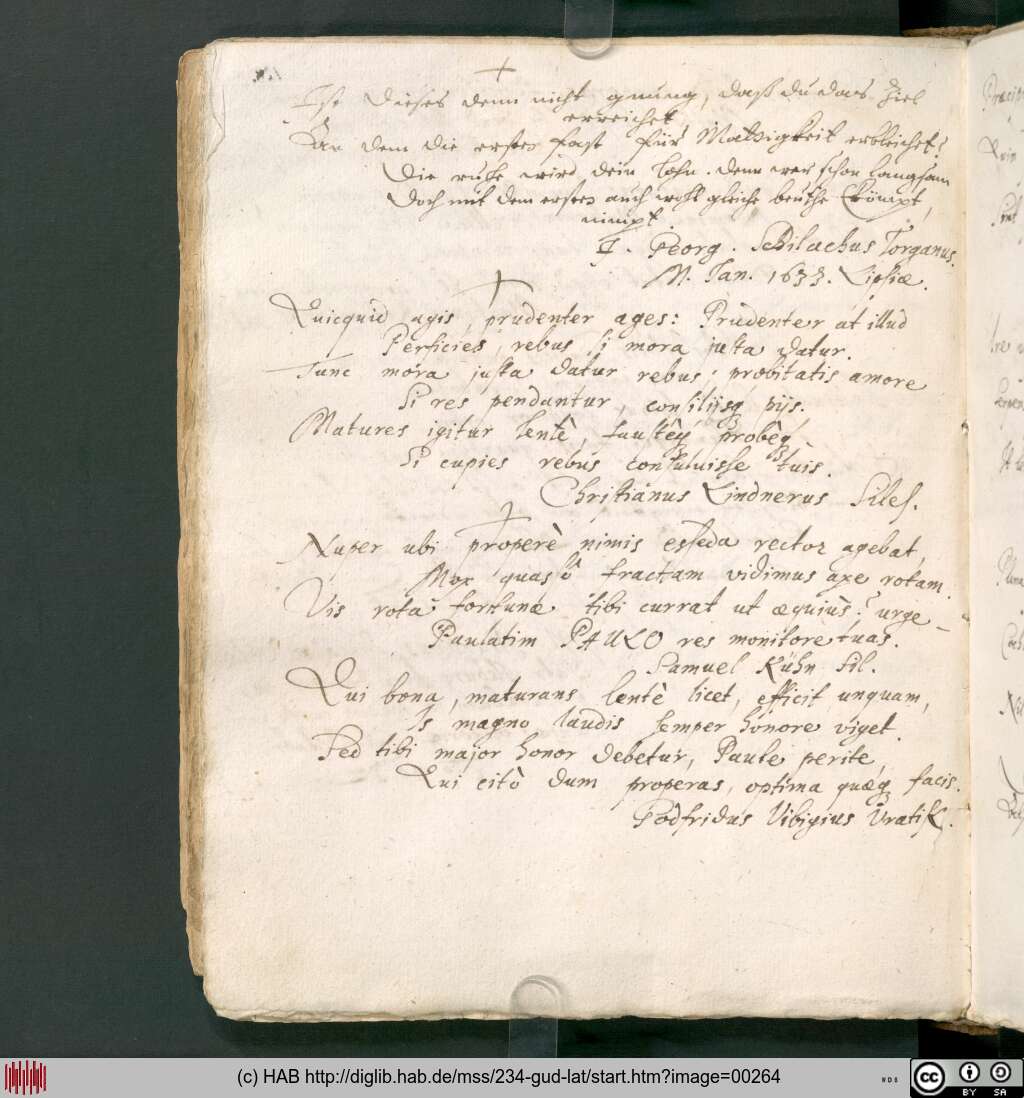 Ist dieses denn nicht gnung, daß du das Ziel
erreichet,
dem die erster fast für Mattigkeit erbleichet?
Die ruhe wird dein lohn. denn wer schon langsam
kömpt,
Doch mit dem ersten auch wohl gleiche beuthe
nimpt.
Georg. Torganus.
M. Jan. 1633. Lipsiæ.
Quicquid agis, prudenter ages: Prudenter at illud
Perficies, rebus si mora justa datur.
Tunc mora justa datur rebus, probitatis amore
Si res pendantur, consilijsq́ pijs.
Matures igitur lentè, faustèq́, probèq́,
Si cupies rebus consuluisse tuis.
Christianus Lindnerus Siles.
Nuper ubi properè nimis esseda rector agebat,
Mox quassô fractam vidimus axe rotam.
Vis rota fortunæ tibi currat ut æquiùs? urge
Paulatim PAULO res monitore tuas.
Samuel Kühn Sil.
Qui bona, maturans lentè licet, efficit unquam,
Is magno laudis semper honore viget.
Sed tibi major honor debetur, Paule perite,
Qui citò dum properas, optima quæq́ facis.
Godfridus Vibigius Vratisl.
(c) HAB http://diglib.hab.de/mss/234-gud-lat/start.htm?image=00264
cc BY SA